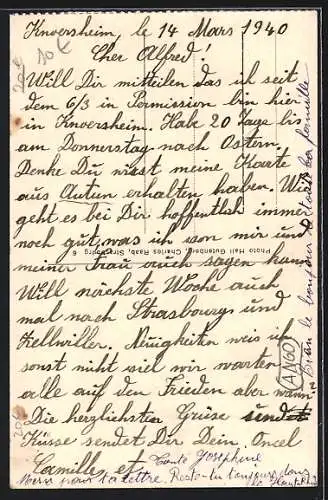 Knœrsheim, le 14 Mars 1940
Cher Alfred!
Will Dir mitteilen das ich seit
dem 6/3 in Permission bin hier
in Knœrsheim. Hab 20 Tage bis
am Donnerstag nach Ostern.
Denke Du wirst meine Karte
aus Autun erhalten haben. Wie
geht es bei Dir hoffentlich immer
noch gut, was ich von mir und
meiner Frau auch sagen kann
Will nächste Woche auch
mal nach Strasbourg und
Zellwiller. Neuigkeiten weis ich
sonst nicht viel wir warten
alle auf den Frieden aber wann?
Die herzlichsten Grüse und
Küsse sendet Dir Dein Oncel
Camille et Tante Joséphine
Merci pour ta lettre. Restes-tu toujours dans
le Haut-Rhin
bonjour à toute la famille
Photo Hall Gutenberg, Charles Raab, Strasbourg 6
ANGO
20 €